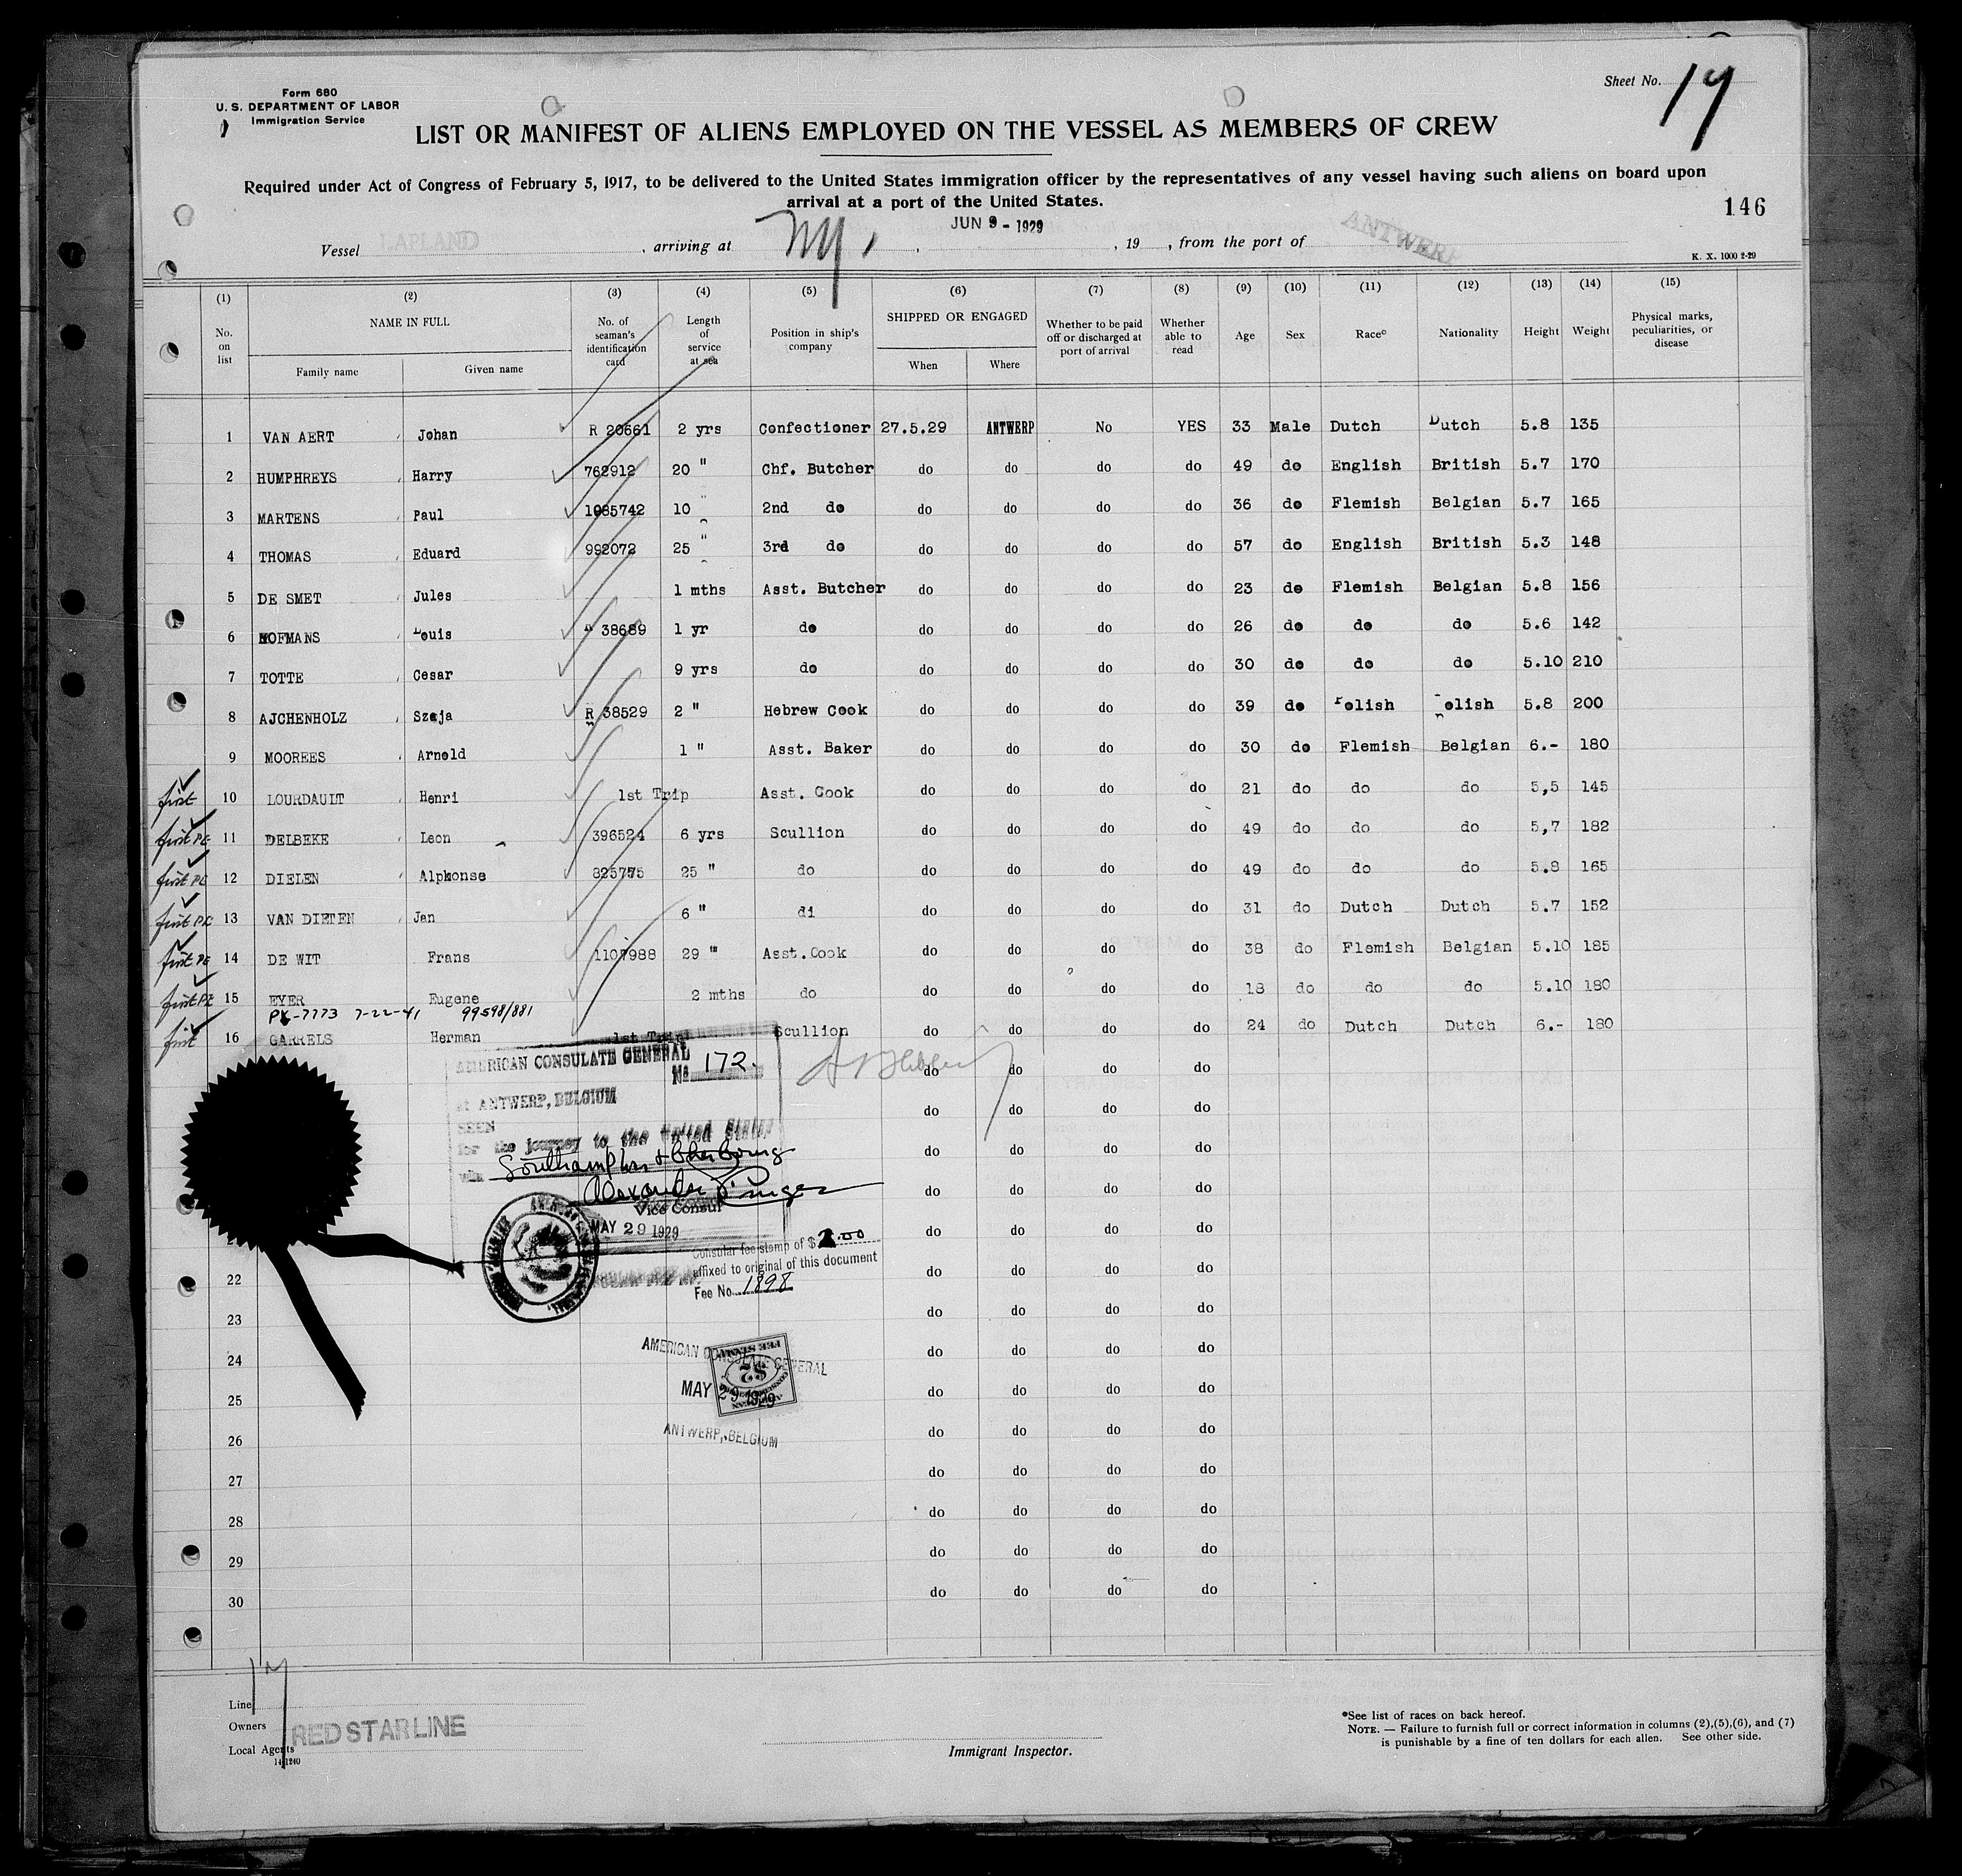 Form 680
U. S. DEPARTMENT OF LABOR
Immigration Service
Sheet No. 17
LIST OR MANIFEST OF ALIENS EMPLOYED ON THE VESSEL AS MEMBERS OF CREW
Required under Act of Congress of February 5, 1917, to be delivered to the United States immigration officer by the representatives of any vessel having such aliens on board upon
arrival at a port of the United States.
146
Vessel LAPLAND, arriving at N.Y., JUN 9 - 1929, 19 , from the port of ANTWERP
K. X. 1000 2-29
(1) (2) (3) (4) (5) (6) (7) (8) (9) (10) (11) (12) (13) (14) (15)
No. on list NAME IN FULL Family name Given name No. of seaman's identification card Length of service at sea Position in ship's company SHIPPED OR ENGAGED When Where Whether to be paid off or discharged at port of arrival Whether able to read Age Sex Race* Nationality Height Weight Physical marks, peculiarities, or disease
1 VAN AERT Johan R 20661 2 yrs Confectioner 27.5.29 ANTWERP No YES 33 Male Dutch Dutch 5.8 135
2 HUMPHREYS Harry 762912 20 " Chf. Butcher do do do do 49 do English British 5.7 170
3 MARTENS Paul 1085742 10 " 2nd do do do do do 36 do Flemish Belgian 5.7 165
4 THOMAS Eduard 992072 25 " 3rd do do do do do 57 do English British 5.3 148
5 DE SMET Jules 1 mths Asst. Butcher do do do do 23 do Flemish Belgian 5.8 156
6 HOFMANS Louis 38689 1 yr do do do do do 26 do do do 5.6 142
7 TOTTE Cesar 9 yrs do do do do do 30 do do do 5.10 210
8 AJCHENHOLZ Szaja R 38529 2 " Hebrew Cook do do do do 39 do Polish Polish 5.8 200
9 MOOREES Arnold 1 " Asst. Baker do do do do 30 do Flemish Belgian 6.- 180
first 10 LOURDAULT Henri 1st Trip Asst. Cook do do do do 21 do do do 5,5 145
first PE 11 DELBEKE Leon 396524 6 yrs Scullion do do do do 49 do do do 5,7 182
first PE 12 DIELEN Alphonse 825775 25 " do do do do do 49 do do do 5.8 165
first PE 13 VAN DIETEN Jan 6 " di do do do do 31 do Dutch Dutch 5.7 152
first PE 14 DE WIT Frans 1107988 29 " Asst.Cook do do do do 38 do Flemish Belgian 5.10 185
first PE 15 EYER Eugene 2 mths do do do do do 18 do do do 5.10 180
PX-7773 7-22-41 99598/881
first 16 GARRELS Herman 1st Trip Scullion do do do do 24 do Dutch Dutch 6.- 180
do do do do
do do do do
do do do do
do do do do
do do do do
22 do do do do
23 do do do do
24 do do do do
25 do do do do
26 do do do do
27 do do do do
28 do do do do
29 do do do do
30 do do do do
AMERICAN CONSULATE GENERAL
No 172.
at ANTWERP, BELGIUM
SEEN
for the journey to the United States
via Southampton & Cherbourg
Alexander
Vice Consul
MAY 29 1929
Consular fee stamp of $ 2.00
affixed to original of this document
Fee No. 1898
AMERICAN CONSULATE GENERAL
MAY 29 1929
ANTWERP, BELGIUM
$2
17
Line
Owners RED STAR LINE
Local Agents
14-1240
Immigrant Inspector.
*See list of races on back hereof.
NOTE. — Failure to furnish full or correct information in columns (2),(5),(6), and (7)
is punishable by a fine of ten dollars for each alien. See other side.